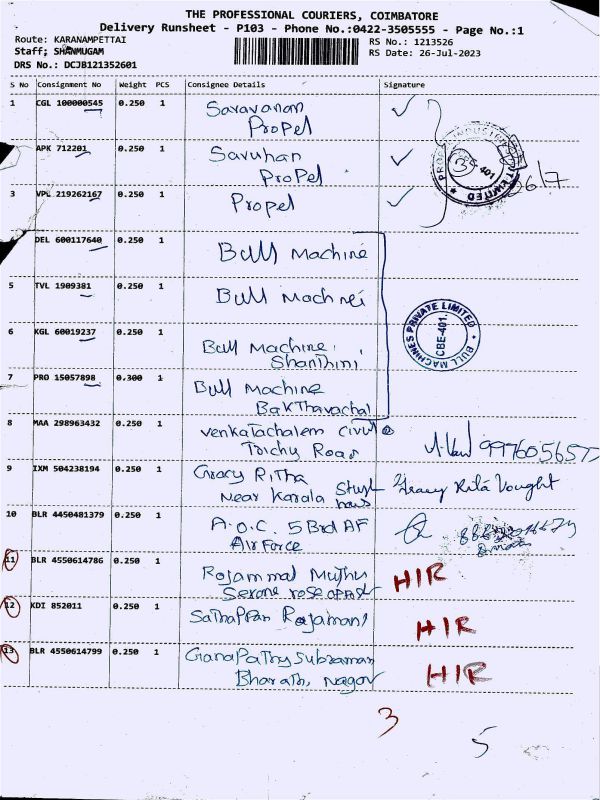 THE PROFESSIONAL COURIERS, COIMBATORE
Delivery Runsheet - P103 - Phone No.:0422-3505555 - Page No.:1
Route: KARANAMPETTAI
RS No.: 1213526
Staff; SHANMUGAM
RS Date: 26-Jul-2023
DRS No.: DCJB121352601
S No Consignment No Weight PCS Consignee Details Signature
1 CGL 100000545 0.250 1 Saravanan
Propel
APK 712201 0.250 1 Savuhan
Propel
3 VPL 219262167 0.250 1 Propel
PROPEL INDUSTRIES PRIVATE LIMITED
CBE-401
26/7
DEL 600117640 0.250 1 Bull Machine
5 TVL 1909381 0.250 1 Bull Machnei
6 KGL 60019237 0.250 1 Bull Machine
Shanthini
BULL MACHINES PRIVATE LIMITED
CBE-401.
7 PRO 15057898 0.300 1 Bull Machine
Bakthavachal
8 MAA 298963432 0.250 1 Venkatachalem Civil
Trichy Road
9 IXM 504238194 0.250 1 Gracy Ritha
Near Karala
Gracy Rita Vought
10 BLR 4450481379 0.250 1 A.O.C. 5 Brd AF
Air Force
11 BLR 4550614786 0.250 1 Rojammal Muthu
HIR
12 KDI 852011 0.250 1 Sathappan Rajamani
HIR
13 BLR 4550614799 0.250 1 Ganapathy Subraman
Bharathi Nagar
HIR
3
5